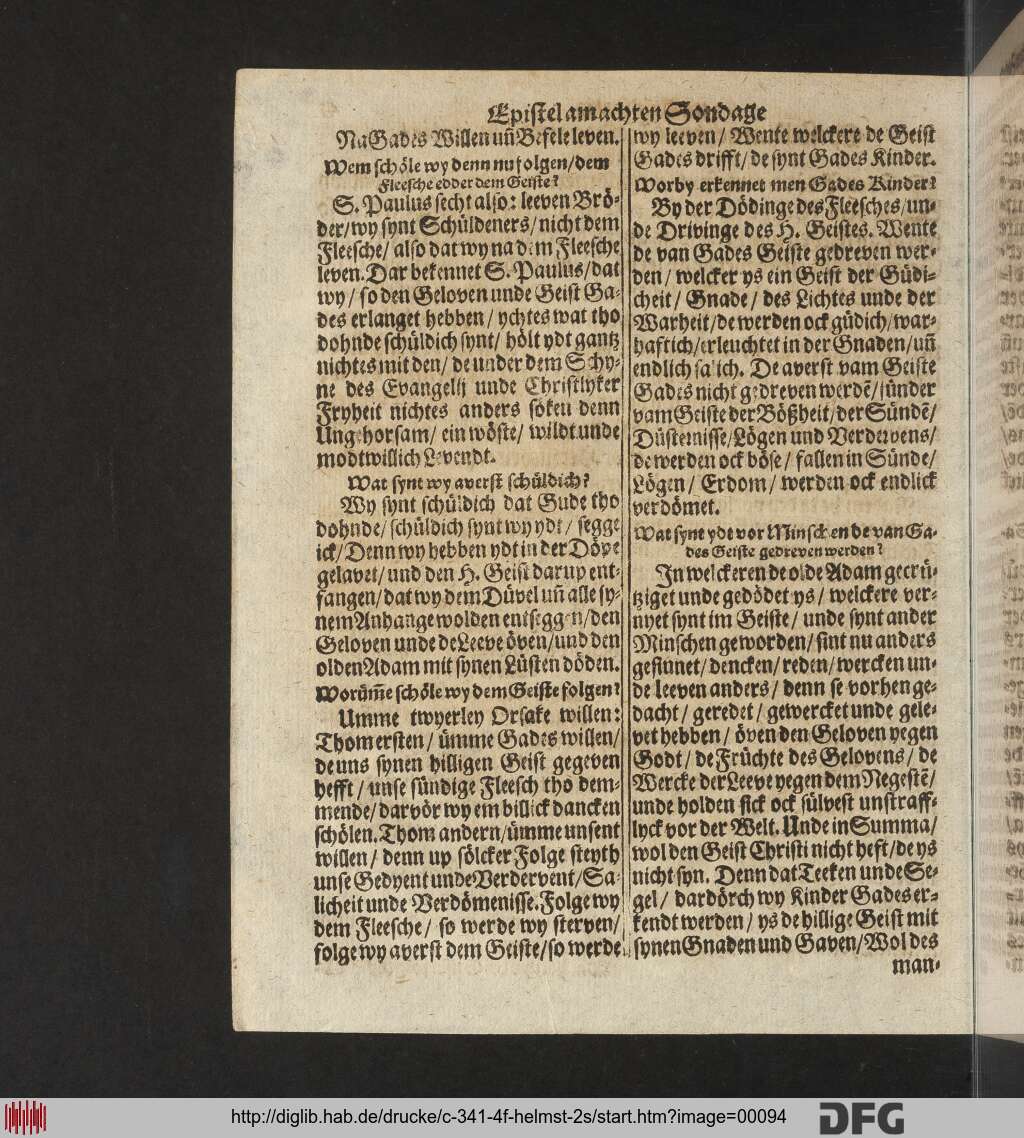 Epistel am achten Sondage
Na Gades Willen uñ Befele leven.
Wem schöle wy denn nu folgen/dem
Fleesche edder dem Geiste?
S. Paulus secht also: leeven Brö-
der/wy synt Schüldeners/nicht dem
Fleesche/ also dat wy na dem Fleesche
leven. Dar bekennet S. Paulus/dat
wy/ so den Geloven unde Geist Ga-
des erlanget hebben/ ychtes wat tho
dohnde schüldich synt/ hölt ydt gantz
nichtes mit den/ de under dem Schy-
ne des Evangelij unde Christlyker
Fryheit nichtes anders söken denn
Ungehorsam/ ein wöste/ wildt unde
modtwillich Levendt.
Wat synt wy averst schüldich?
Wy synt schüldich dat Gude tho
dohnde/ schüldich synt wy ydt/ segge
ick/ Denn wy hebben ydt in der Döpe
gelavet/ und den H. Geist darup ent-
fangen/ dat wy dem Düvel uñ alle sy-
nem Anhange wolden entseggen/den
Geloven unde de Leeve öven/und den
olden Adam mit synen Lüsten döden.
Worüm̃e schöle wy dem Geiste folgen?
Umme twyerley Orsake willen:
Thom ersten/ ümme Gades willen/
de uns synen hilligen Geist gegeven
hefft/ unse sündige Fleesch tho dem-
mende/ darvör wy em billick dancken
schölen. Thom andern/ümme unsent
willen/ denn up sölcker Folge steyth
unse Gedyent unde Verdervent/Sa-
licheit unde Verdömenisse. Folge wy
dem Fleesche/ so werde wy sterven/
folge wy averst dem Geiste/so werde
wy leeven/ Wente welckere de Geist
Gades drifft/ de synt Gades Kinder.
Worby erkennet men Gades Kinder?
By der Dödinge des Fleesches/un-
de Drivinge des H. Geistes. Wente
de van Gades Geiste gedreven wer-
den/ welcker ys ein Geist der Güdi-
cheit/ Gnade/ des Lichtes unde der
Warheit/de werden ock güdich/war-
haftich/erleuchtet in der Gnaden/uñ
endlich salich. De averst vam Geiste
Gades nicht gedreven werdē/sünder
vam Geiste der Bößheit/der Sündē/
Düsternisse/Lögen und Verdervens/
de werden ock böse/ fallen in Sünde/
Lögen/ Erdom/ werden ock endlick
verdömet.
Wat synt ydt vor Minschen de van Ga-
des Geiste gedreven werden?
In welckeren de olde Adam gecrü-
tziget unde gedödet ys/ welckere ver-
nyet synt im Geiste/ unde synt ander
Minschen geworden/ sint nu anders
gesinnet/ dencken/ reden/ wercken un-
de leeven anders/ denn se vorhen ge-
dacht/ geredet/ gewercket unde gele-
vet hebben/ öven den Geloven yegen
Godt/ de Früchte des Gelovens/ de
Wercke der Leeve yegen dem Negestē/
unde holden sick ock sülvest unstraff-
lyck vor der Welt. Unde in Summa/
wol den Geist Christi nicht heft/de ys
nicht syn. Denn dat Teeken unde Se-
gel/ dardörch wy Kinder Gades er-
kendt werden/ ys de hillige Geist mit
synen Gnaden und Gaven/Wol des
man-
http://diglib.hab.de/drucke/c-341-4f-helmst-2s/start.htm?image=00094
DFG